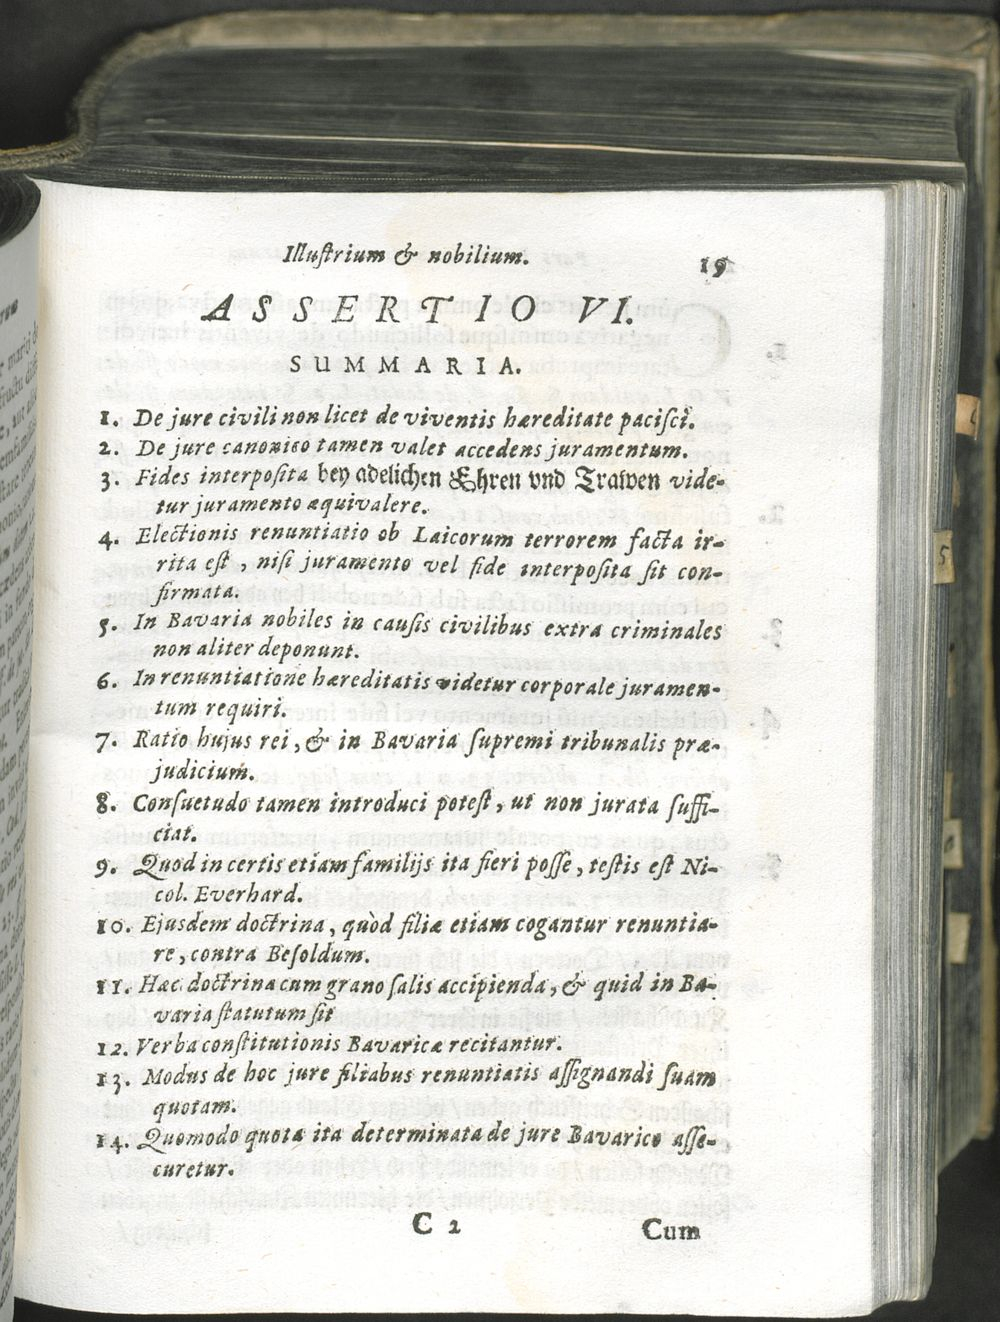 Illustrium & nobilium.
19
ASSERTIO VI.
SUMMARIA.
1. De jure civili non licet de viventis hæreditate pacisci.
2. De jure canonico tamen valet accedens juramentum.
3. Fides interposita bey adelichen Ehren vnd Trawen vide-
tur juramento æquivalere.
4. Electionis renuntiatio ob Laicorum terrorem facta ir-
rita est, nisi juramento vel fide interposita sit con-
firmata.
5. In Bavaria nobiles in causis civilibus extra criminales
non aliter deponunt.
6. In renuntiatione hæreditatis videtur corporale juramen-
tum requiri.
7. Ratio hujus rei, & in Bavaria supremi tribunalis præ-
judicium.
8. Consuetudo tamen introduci potest, ut non jurata suffi-
ciat.
9. Quod in certis etiam familijs ita fieri posse, testis est Ni-
col. Everhard.
10. Ejusdem doctrina, quòd filiæ etiam cogantur renuntia-
re, contra Besoldum.
11. Hæc doctrina cum grano salis accipienda, & quid in Ba-
varia statutum sit
12. Verba constitutionis Bavaricæ recitantur.
13. Modus de hoc jure filiabus renuntiatis assignandi suam
quotam.
14. Quomodo quota ita determinata de jure Bavarico asse-
curetur.
C 2
Cum
5